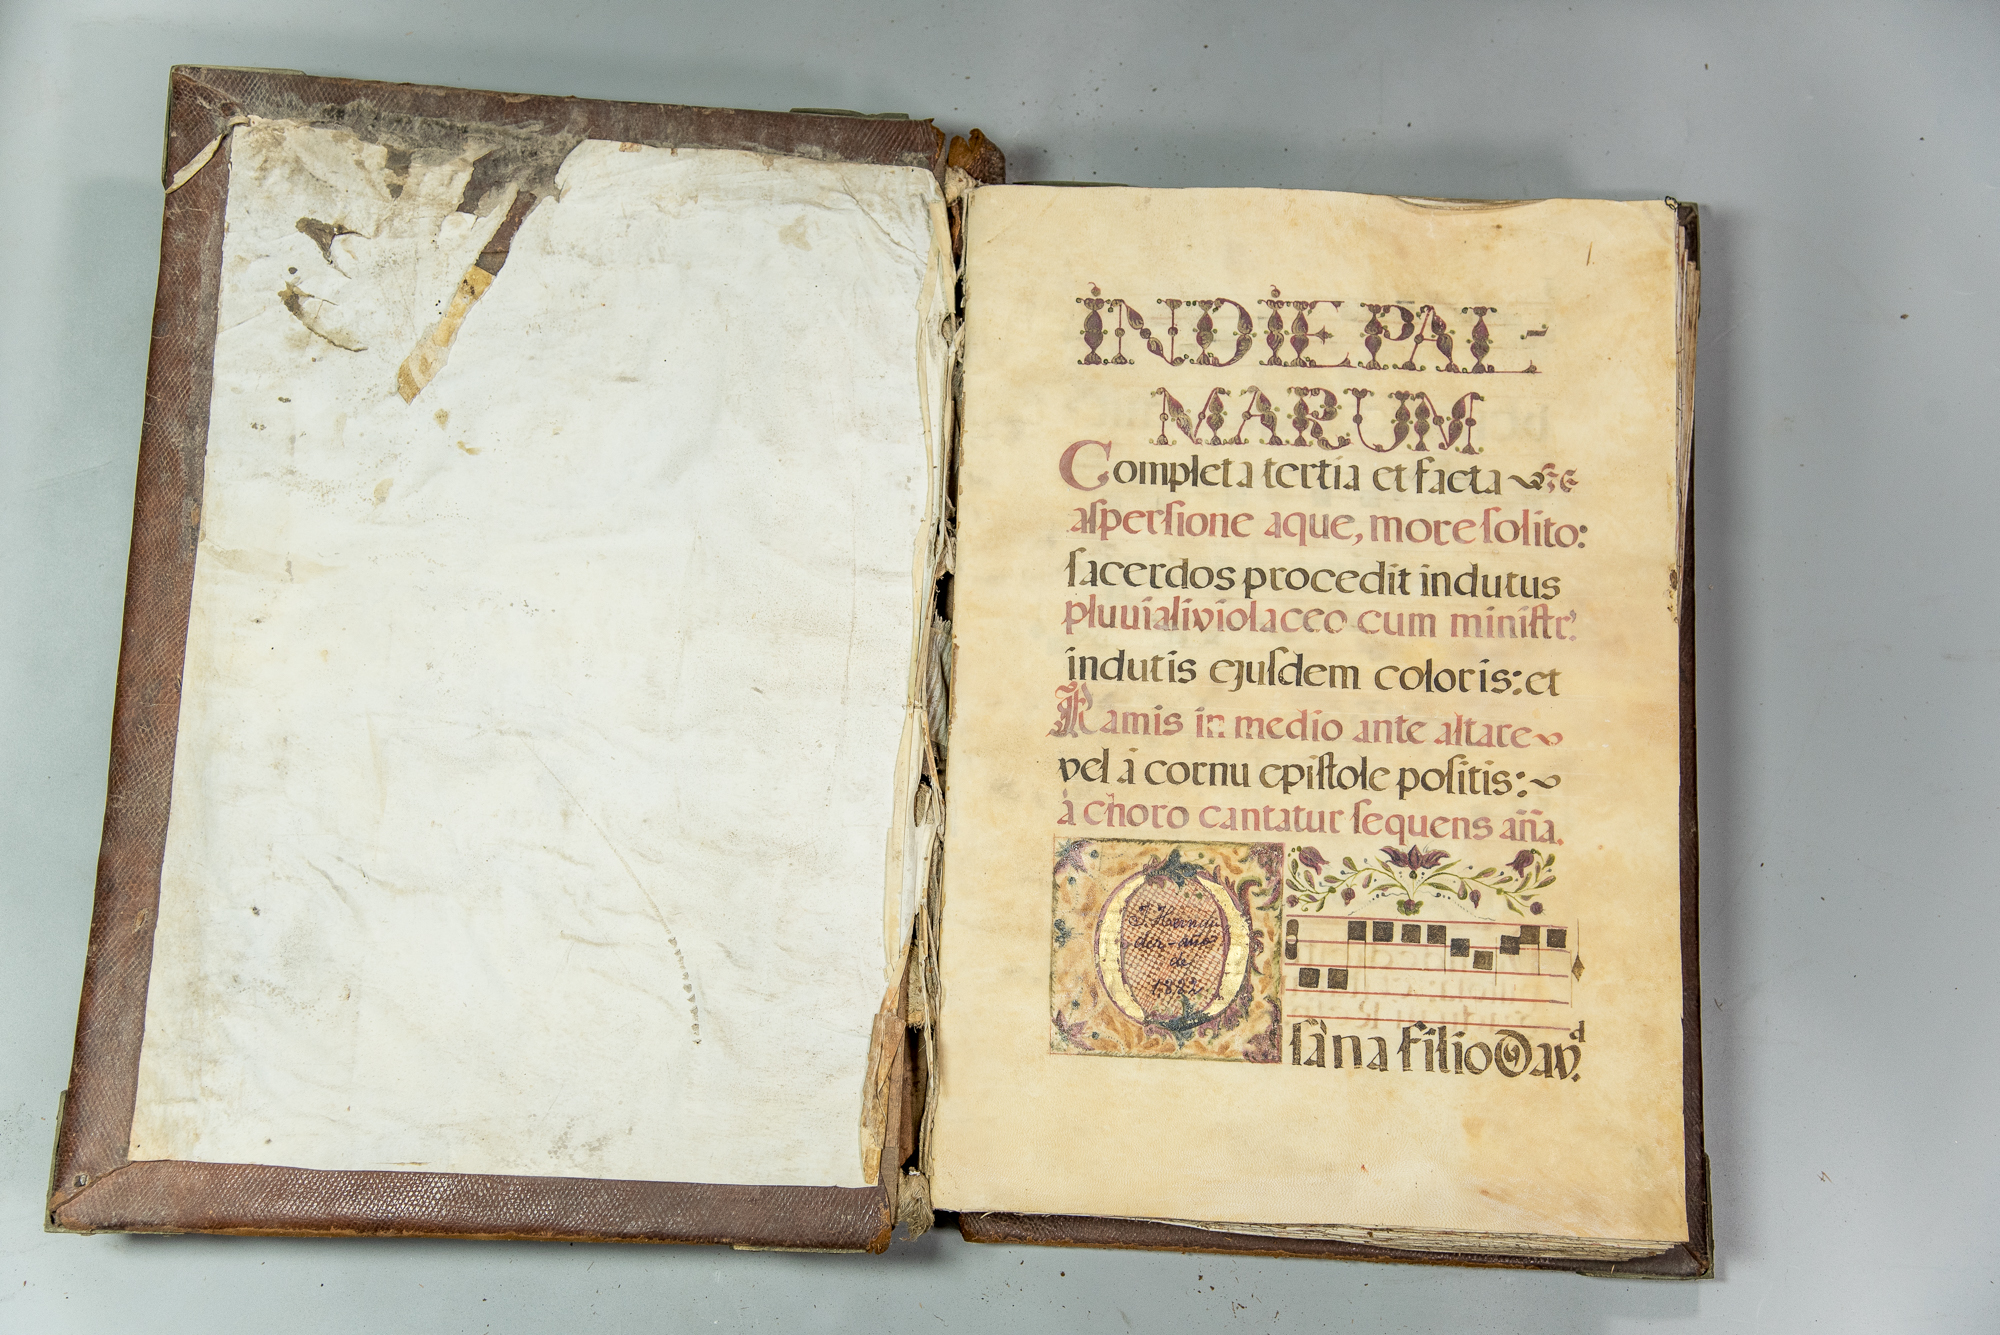 IN DIE PAL-
MARUM
Completa tertia et facta
aſperſione aque, more ſolito:
ſacerdos procedit indutus
pluuiali violaceo cum miniſtr.
indutis ejuſdem coloris: et
Ramis in medio ante altare
vel à cornu epiſtole poſitis:
à choro cantatur ſequens aña.
O
de
1822
ſàna filio Davd.